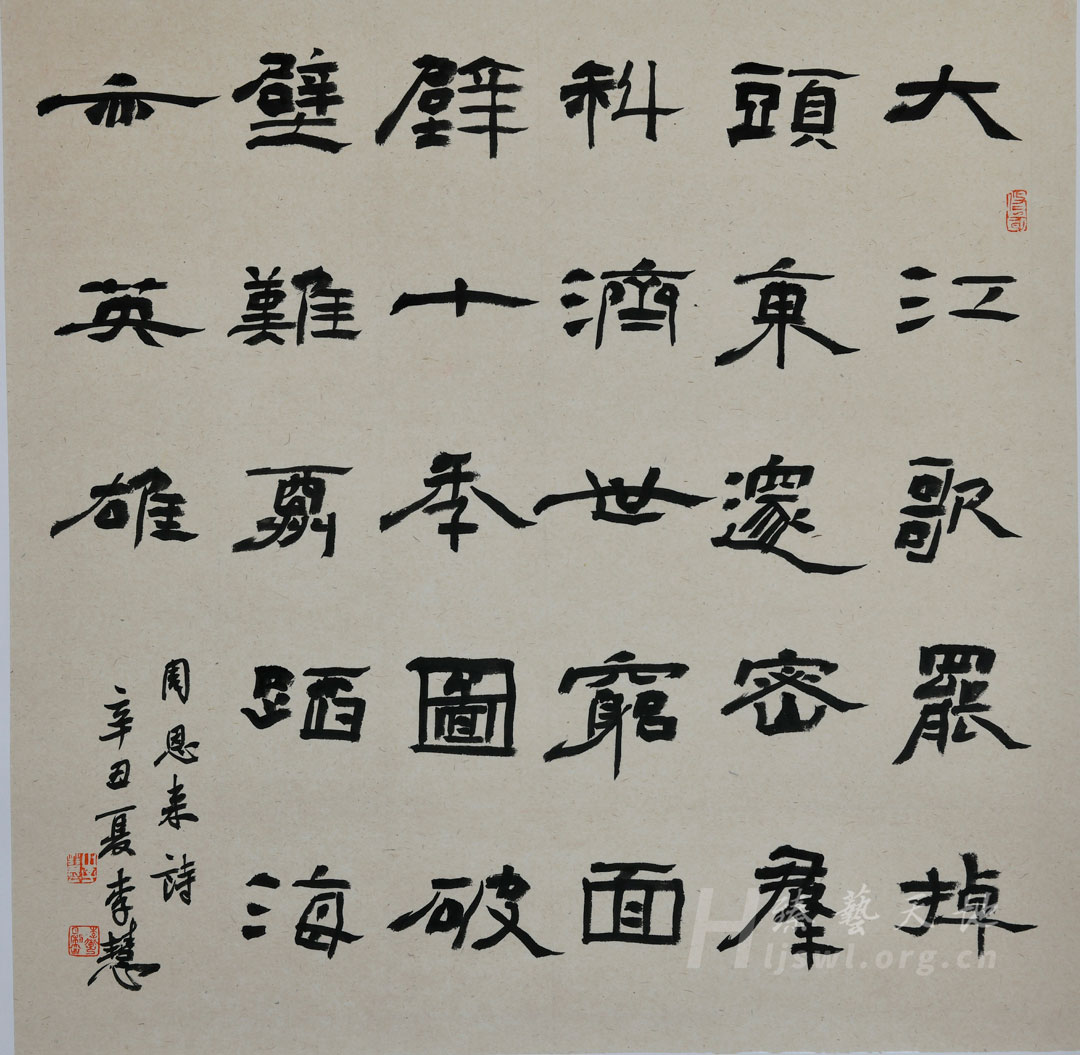 大江歌罷掉
頭東邃密羣
科濟世窮面
壁十年圖破
壁難酬蹈海
亦英雄
周恩来詩
辛丑夏李慧
Hljswl.org.cn